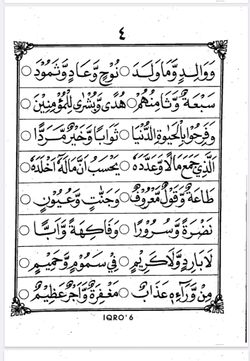 ٤
وَوَالِدٍ وَّمَا وَلَدَ ○ نُوْحٍ وَّعَادٍ وَّثَمُوْدَ ○
سَبْعَةٌ وَّثَامِنُهُمْ ○ هُدًى وَّبُشْرٰى لِلْمُؤْمِنِيْنَ
وَفَرِحُوْا بِالْحَيٰوةِ الدُّنْيَا ○ ثَوَابًا وَّخَيْرٌ مَّرَدًّا ○
اَلَّذِيْ جَمَعَ مَالًا وَّعَدَّدَهٗ ○ يَحْسَبُ اَنَّ مَالَهٗٓ اَخْلَدَهٗ ○
طَاعَةٌ وَّقَوْلٌ مَّعْرُوْفٌ ○ وَجَنّٰتٍ وَّعُيُوْنٍ ○
نَضْرَةً وَّسُرُوْرًا ○ وَفَاكِهَةً وَّاَبًّا ○
لَا بَارِدٍ وَّلَا كَرِيْمٍ ○ فِيْ سَمُوْمٍ وَّحَمِيْمٍ ○
مِنْ وَّرَاۤءِهٖ عَذَابٌ ○ مَغْفِرَةٌ وَّاَجْرٌ عَظِيْمٌ ○
IQRO' 6